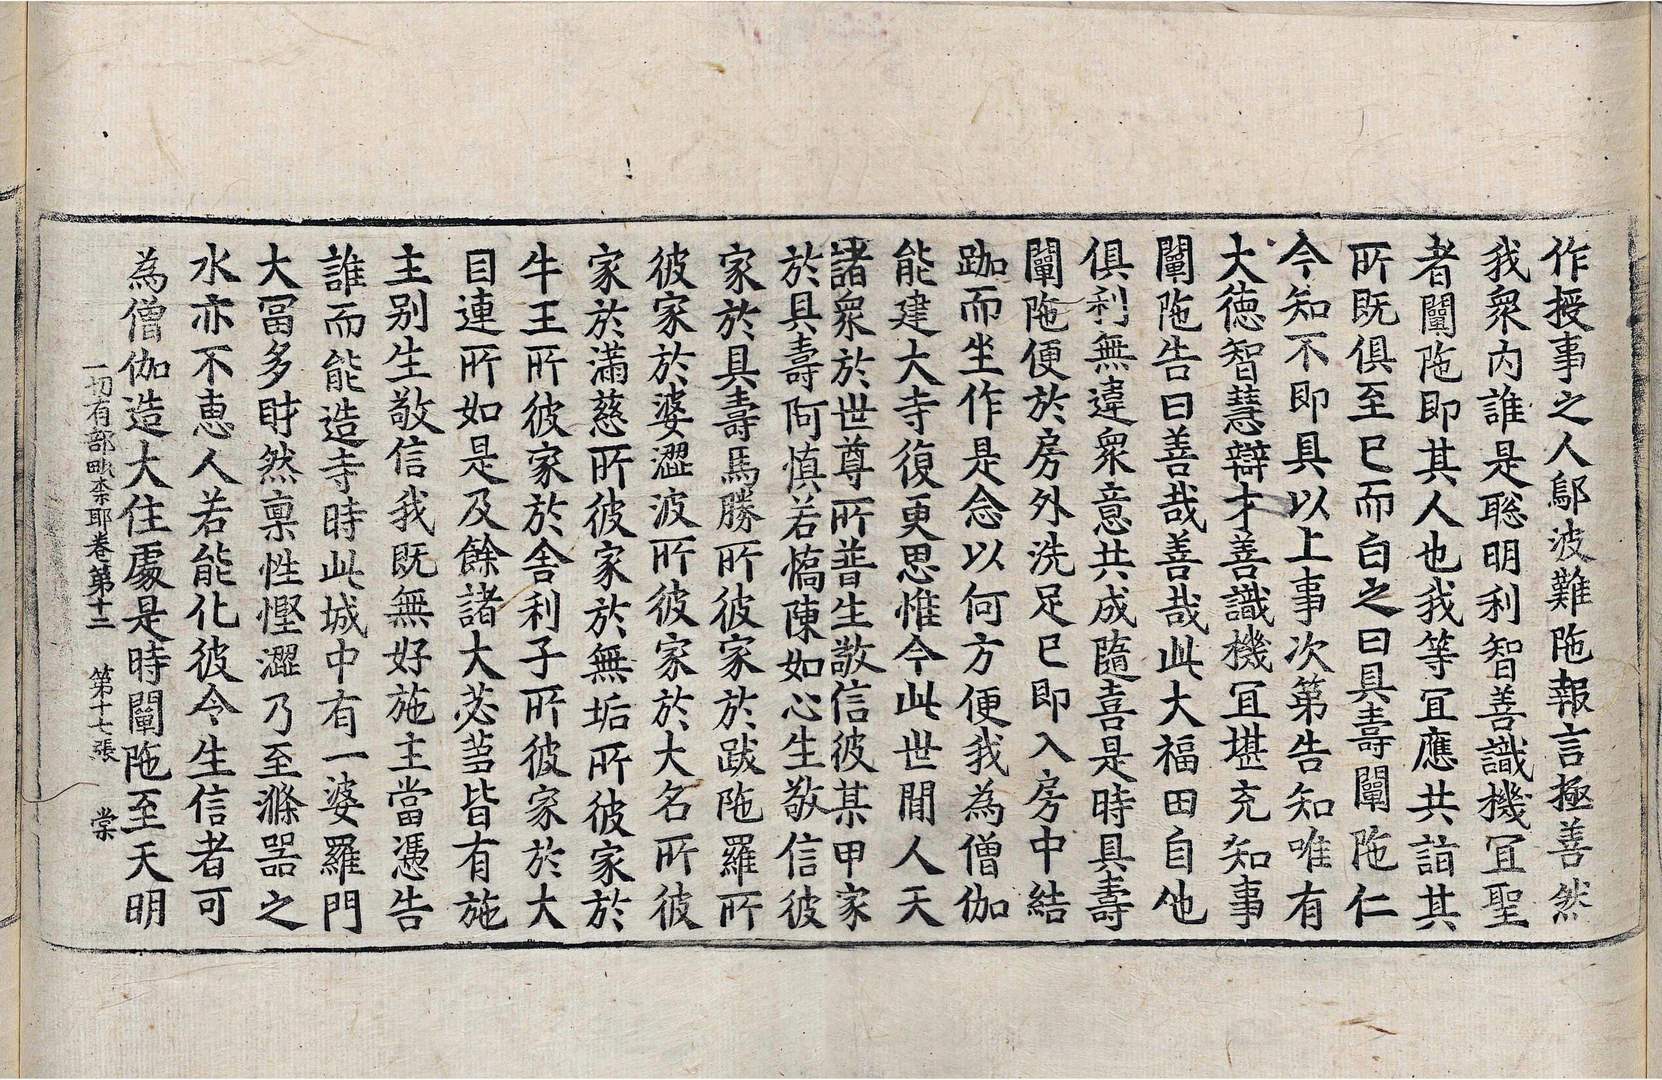 作授事之人鄔波難陁報言極善然
我衆内誰是聡明利智善識機冝聖
者闡陁即其人也我等冝應共詣其
所既俱至已而白之曰具壽闡陁仁
今知不即具以上事次第告知唯有
大德智慧辯才善識機冝堪充知事
闡陁告曰善哉善哉此大福田自他
俱利無違衆意共成隨喜是時具壽
闡陁便於房外洗足已即入房中結
跏而坐作是念以何方便我為僧伽
能建大寺復更思惟今此世間人天
諸衆於世尊所普生敬信彼某甲家
於具壽阿慎若憍陳如心生敬信彼
家於具壽馬勝所彼家於跋陁羅所
彼家於婆澀波所彼家於大名所彼
家於滿慈所彼家於無垢所彼家於
牛王所彼家於舎利子所彼家於大
目連所如是及餘諸大苾蒭皆有施
主别生敬信我既無好施主當憑告
誰而能造寺時此城中有一婆羅門
大冨多財然稟性慳澀乃至滌器之
水亦不恵人若能化彼令生信者可
為僧伽造大住處是時闡陁至天明
一切有部毗柰耶卷第十二　第十七張　棠